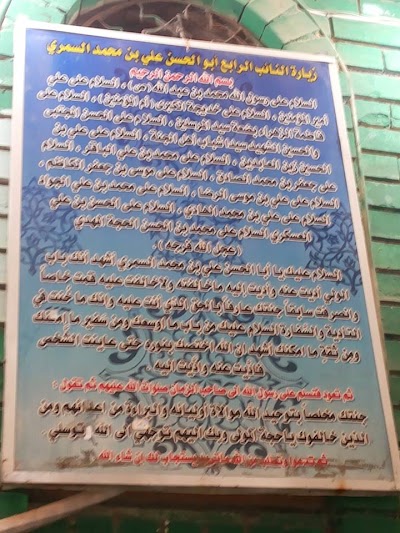 زيارة النائب الرابع ابو الحسن علي بن محمد السمري
بسم الله الرحمن الرحيم
السلام على رسول الله محمد بن عبد الله (ص) ، السلام على علي
أمير المؤمنين ، السلام على خديجة الكبرى (أم المؤمنين) ، السلام على
فاطمة الزهراء بضعة سيد المرسلين ، السلام على الحسن المجتبى
والحسين الشهيد سيدا شباب أهل الجنة ، السلام على علي بن
الحسين زين العابدين ، السلام على محمد بن علي الباقر ، السلام
على جعفر بن محمد الصادق ، السلام على موسى بن جعفر الكاظم ،
السلام على علي بن موسى الرضا ، السلام على محمد بن علي الجواد
السلام على علي بن محمد الهادي ، السلام على الحسن بن علي
العسكري السلام على محمد بن الحسن الحجة المهدي
( عجل الله فرجه )
السلام عليك يا أبا الحسن علي بن محمد السمري أشهد أنك باب
المولى أديت عنه وأديت إليه ما خالفته ولا خالفت عليه قمت خاصاً
وانصرفت سابقاً جئتك عارفاً بالحق الذي أنت عليه وأنك ما خنت في
التأدية والسفارة السلام عليك من باب ما أوسعك ومن سفير ما آمنك
ومن ثقة ما أمكنك أشهد إن الله اختصك بنوره حتى عاينت الشخص
فأديت عنه وأديت إليه .
ثم تعود فتسلم على رسول الله إلى صاحب الزمان صلوات الله عليهم ثم تقول :
جئتك مخلصاً بتوحيد الله موالاة أوليائه والبراءة من اعدائهم ومن
الذين خالفوك يا حجة المولى وبك إليهم توجهي إلى الله توسلي .
إن شاء الله